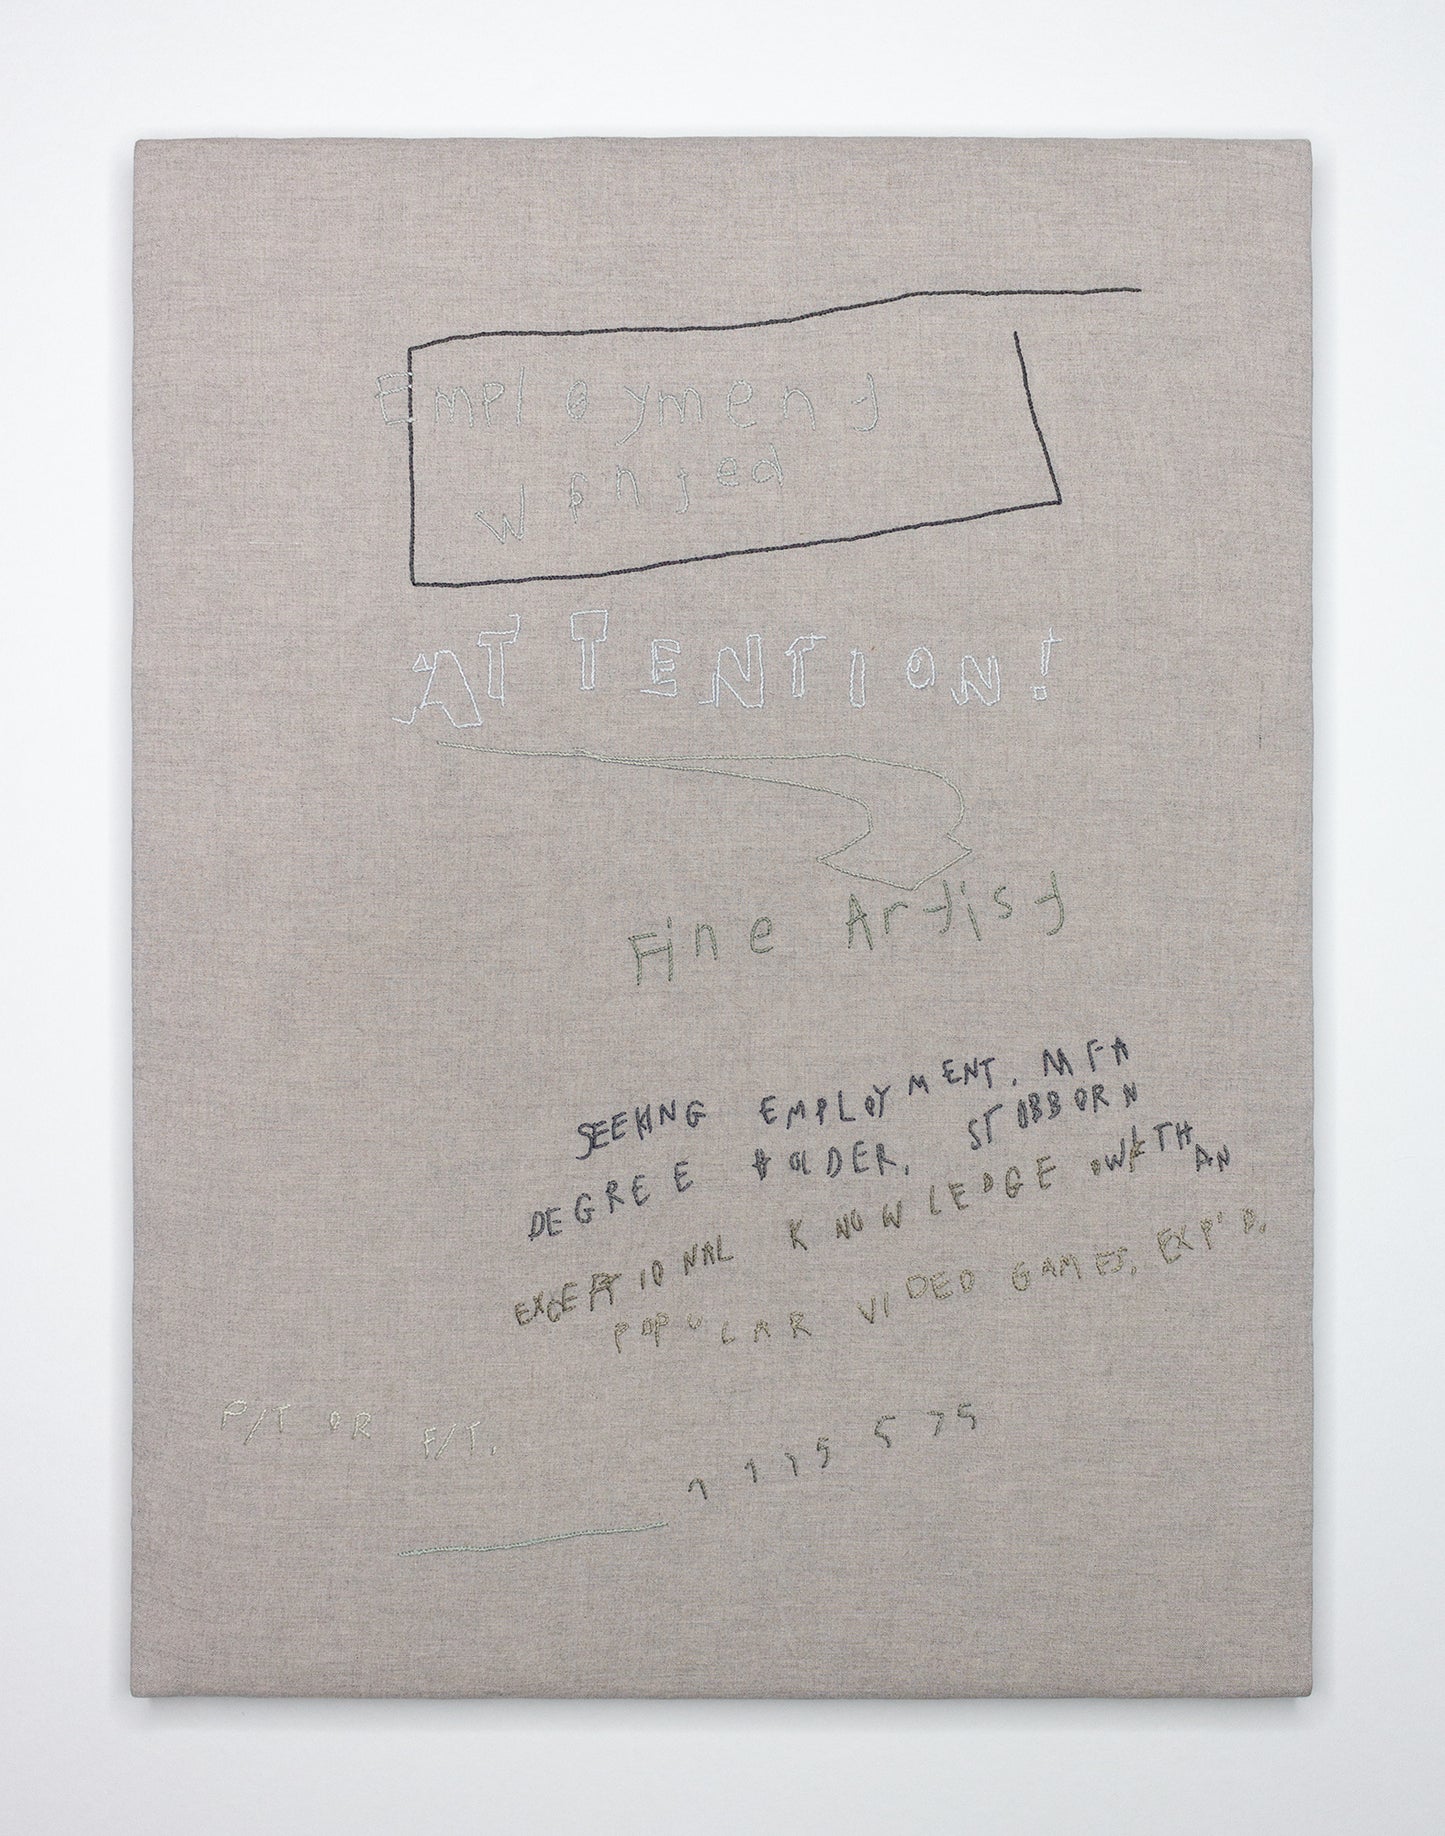 Employment
Wanted
ATTENTION!
Fine Artist
SEEKING EMPLOYMENT. MFA
DEGREE HOLDER, STUBBORN
WITH AN
EXCEPTIONAL KNOWLEDGE OF
POPULAR VIDEO GAMES. EXP'D.
P/T OR F/T.